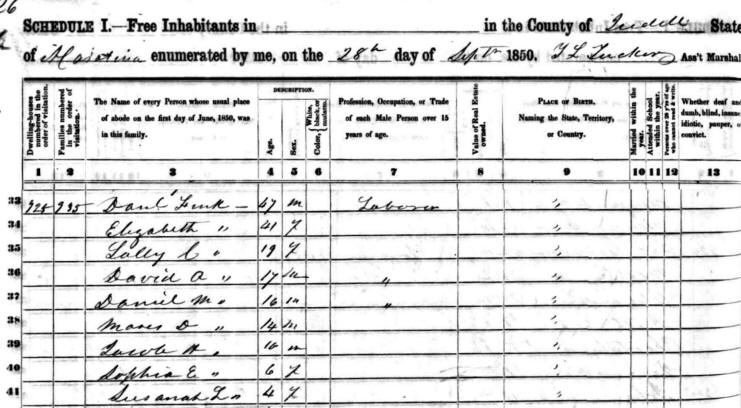 26
SCHEDULE I.—Free Inhabitants in in the County of Iredell State
of N Carolina enumerated by me, on the 28th day of Sept 1850. Ass't Marshal
Dwelling-houses numbered in the order of visitation.
Families numbered in the order of visitation.
The Name of every Person whose usual place of abode on the first day of June, 1850, was in this family.
DESCRIPTION.
Age.
Sex.
Color, White, black, or mulatto.
Profession, Occupation, or Trade of each Male Person over 15 years of age.
Value of Real Estate owned.
PLACE OF BIRTH. Naming the State, Territory, or Country.
Married within the year.
Attended School within the year.
Persons over 20 y'rs of age who cannot read & write.
Whether deaf and dumb, blind, insane, idiotic, pauper, or convict.
1 2 3 4 5 6 7 8 9 10 11 12 13
33 928 935 Danl Fink — 47 m Laborer "
34 Elizabeth " 41 f "
35 Sally C " 19 f "
36 David A " 17 m " "
37 Daniel M " 16 m " "
38 Moses D " 14 m "
39 Jacob A " 10 m "
40 Sophia E " 6 f "
41 Susanah L " 4 f "